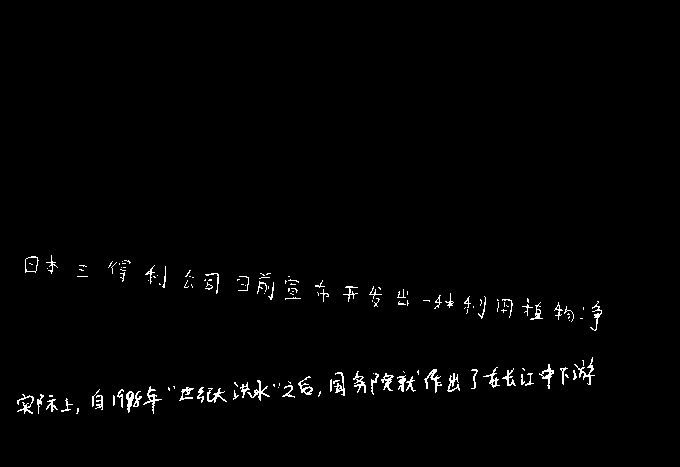 日本三得利公司日前宣布开发出一种利用植物净
实际上,自1998年“世纪大洪水”之后,国务院就作出了在长江中下游